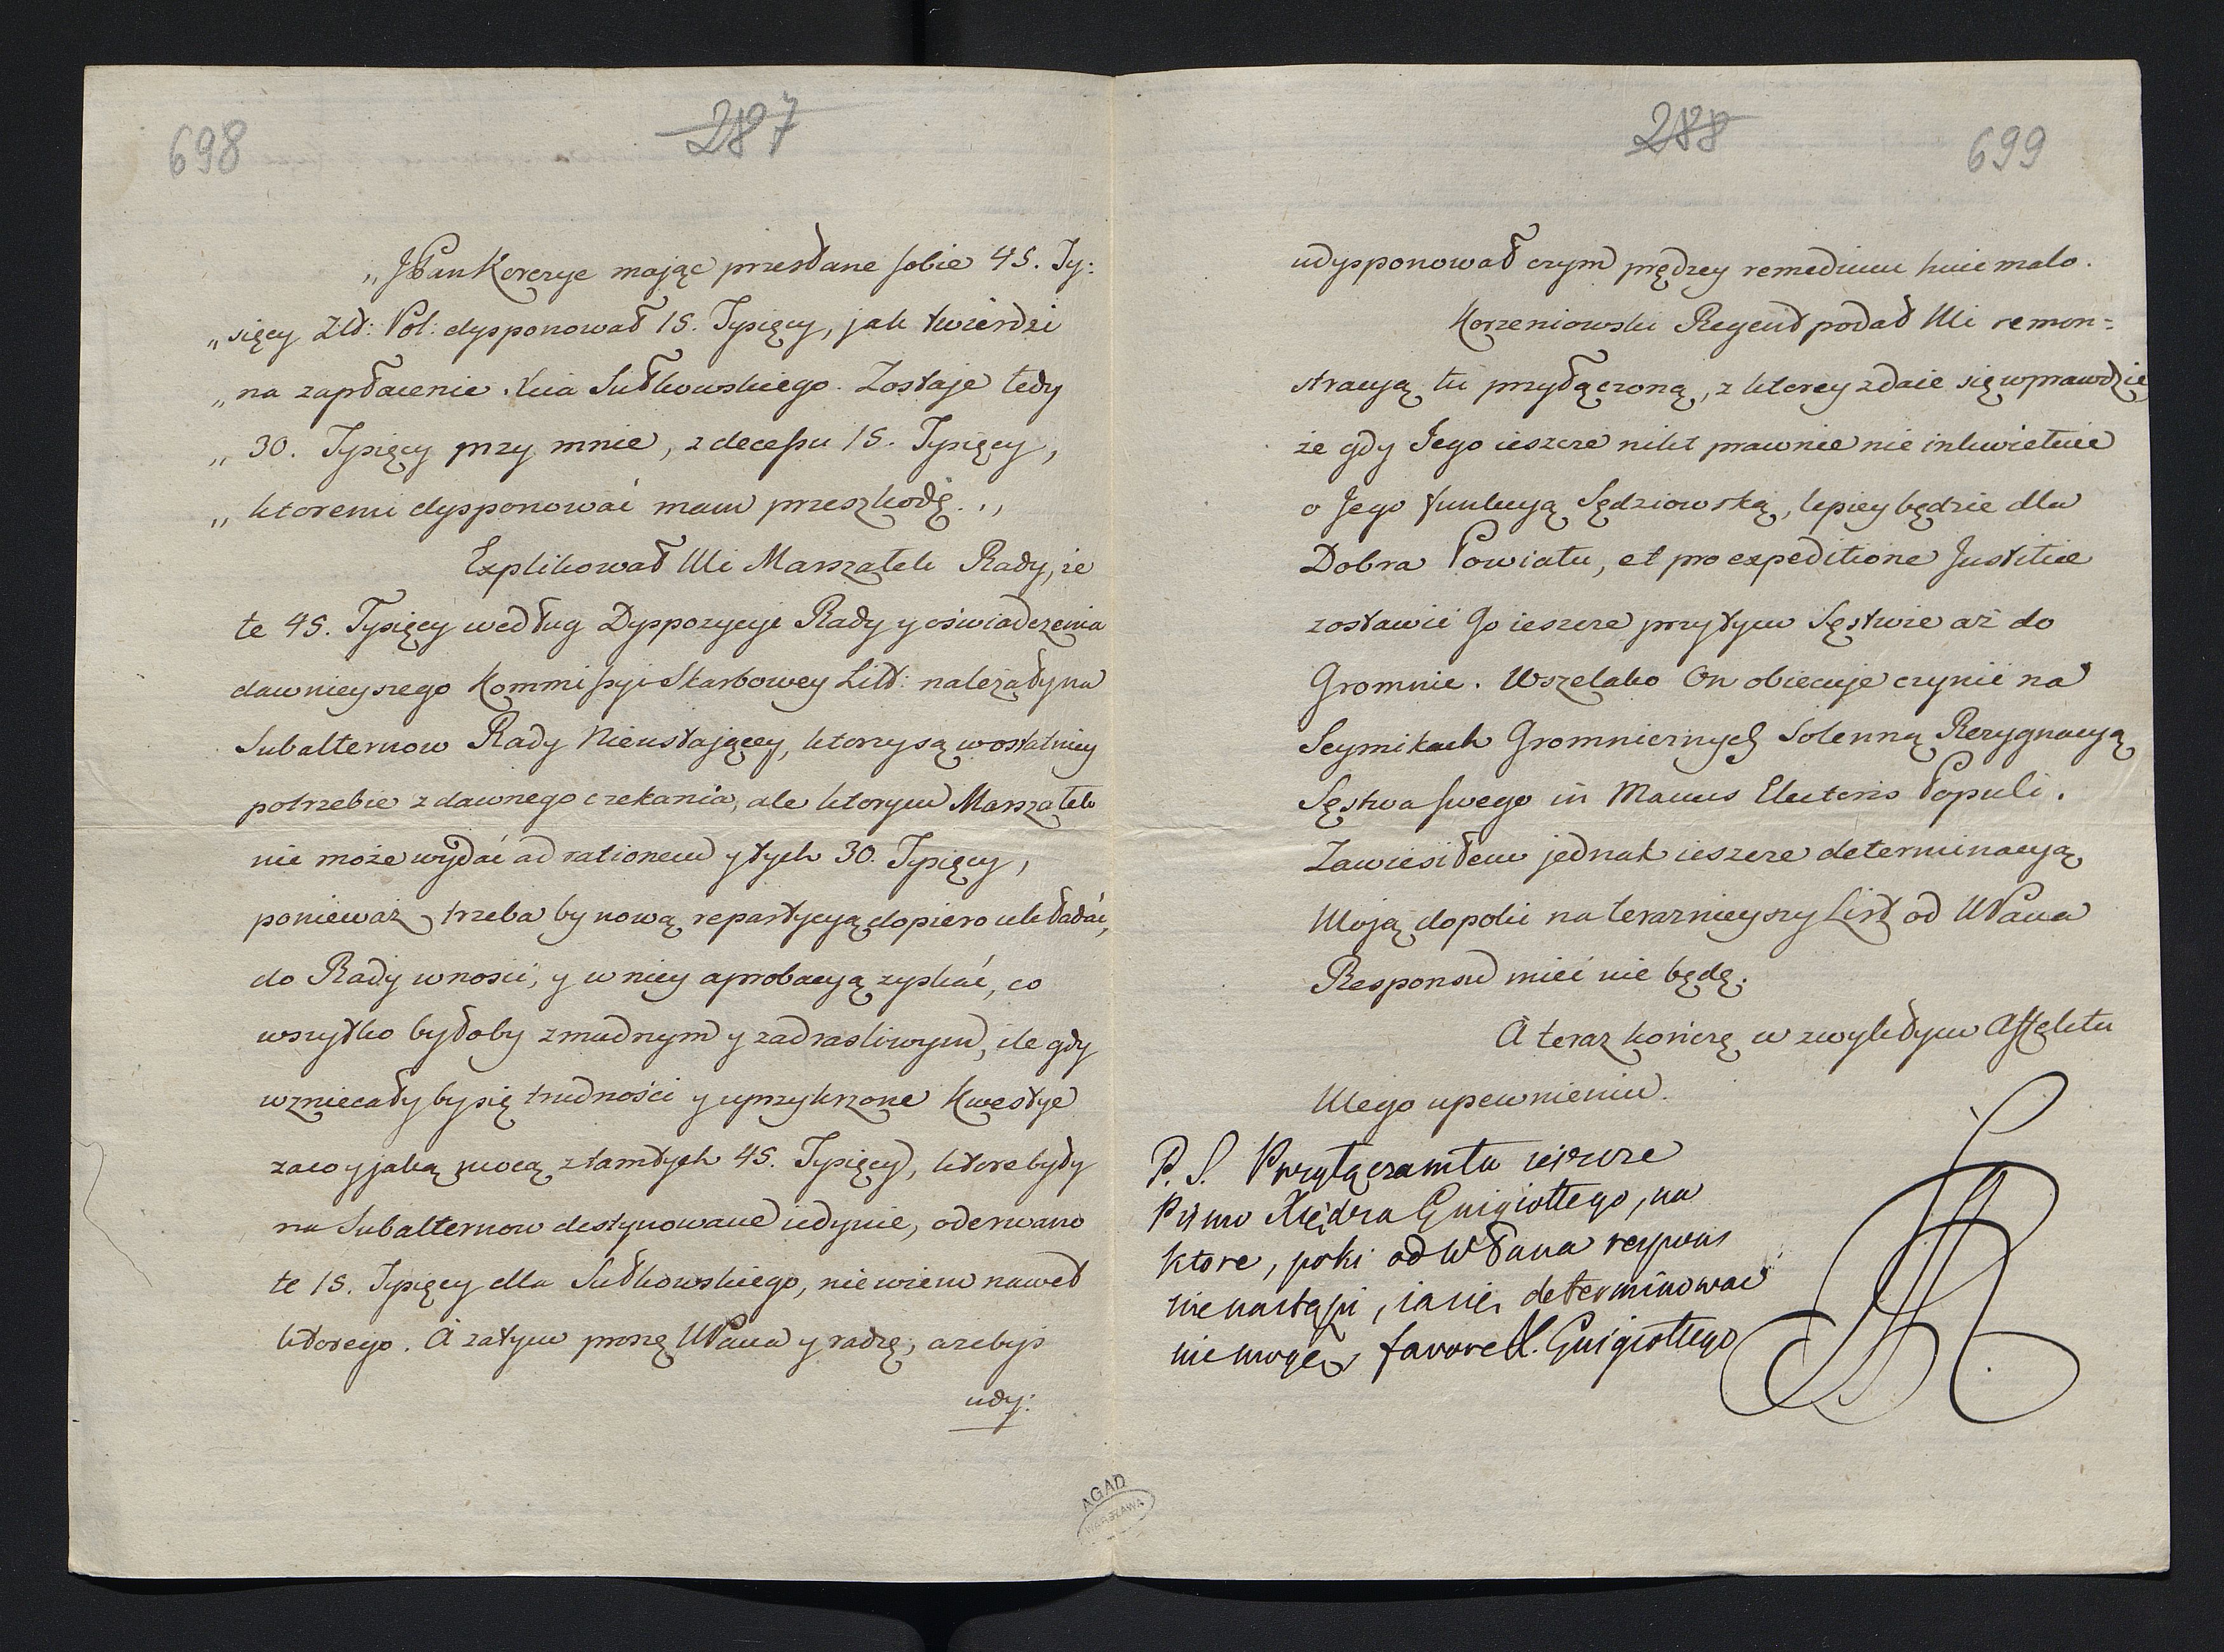 698
287
„JPan Korczyc mając przesłane sobie 45. Ty:
„sięcy Złł: Pol: dysponował 15. Tysięcy, jak twierdzi
„na zapłacenie Xcia Sułkowskiego. Zostaje tedy
„30. Tysięcy przy mnie, z decessu 15. Tysięcy,
„ktoremi dysponować mam przeszkodę.„
Explikował Mi Marszałek Rady, że
te 45. Tysięcy według Dyspozycyi Rady y oświadczenia
dawnieyszego Kommissyi Skarbowey Litt: należały na
Subalternow Rady Nieustającey, ktorzy są w ostatniey
potrzebie z dawnego czekania, ale ktorym Marszałek
nie może wydać ad rationem y tych 30. Tysięcy,
ponieważ trzeba by nową repartycyą dopiero układać,
do Rady wnosić, y w niey aprobacyą zyskać, co
wszytko byłoby zmudnym y zadrasliwym, ile gdy
wzniecały by się trudności y uprzykrzone Kwestye
zaco y jaką mocą z tamtych 45. Tysięcy, ktore były
na Subalternow destynowane iedynie, oderwano
te 15. Tysięcy dla Sułkowskiego, nie wiem nawet
ktorego. A zatym proszę WPana y radzę, azebyś
udy:
288
699
udysponował czym prędzey remedium huic malo.
Korzeniowski Regent podał Mi remon=
stracyą tu przyłączoną, z ktorey zdaie się wprawdzie
że gdy Jego ieszcze nikt prawnie nie inkwietuie
o Jego funkcyą Sędziowską, lepiey będzie dla
Dobra Powiatu, et pro expeditione Justitiæ
zostawić Go ieszcze przy tym Sęstwie aż do
Gromnic. Wszelako On obiecuje czynić na
Seymikach Gromnicznych Solenną Rezygnacyą
Sęstwa swego in Manus Electoris Populi.
Zawiesiłem jednak ieszcze determinacyą
Moją dopoki na teraznieyszy List od WPana
Responsu mieć nie będę.
A teraz kończę w zwykłym Affektu
Mego upewnieniu.
P. S. Przyłączam tu ieszcze
Pismo Xiędza Guigiottego, na
ktore, poki od WPana respons
nie nastąpi, ia się determinować
nie mogę favore X. Guigiottego
SAR
AGAD
WARSZAWA